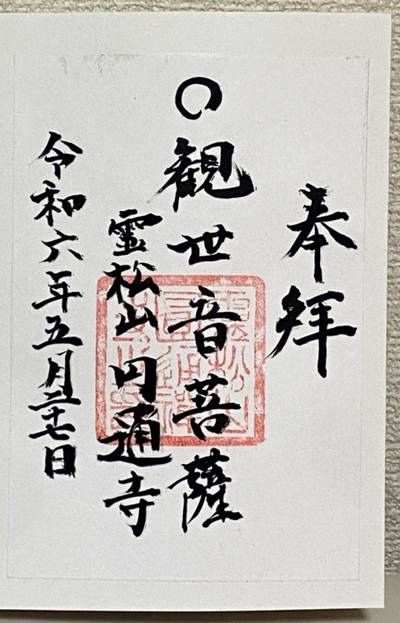 奉拝
〇観世音菩薩
霊松山円通寺
令和六年五月二十七日